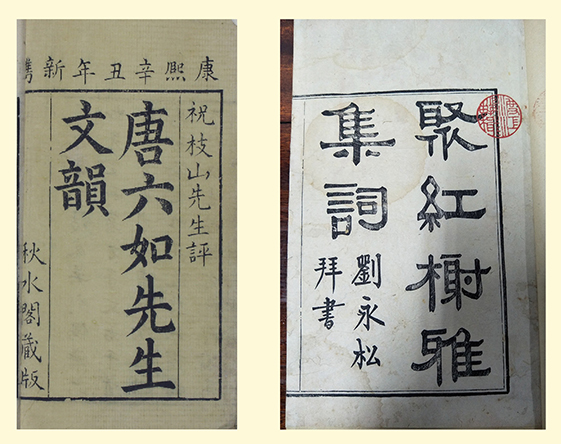 康熙辛丑年新鐫
祝枝山先生評
唐六如先生
文韻
秋水閣藏版
聚紅榭雅
集詞
劉永松
拜書